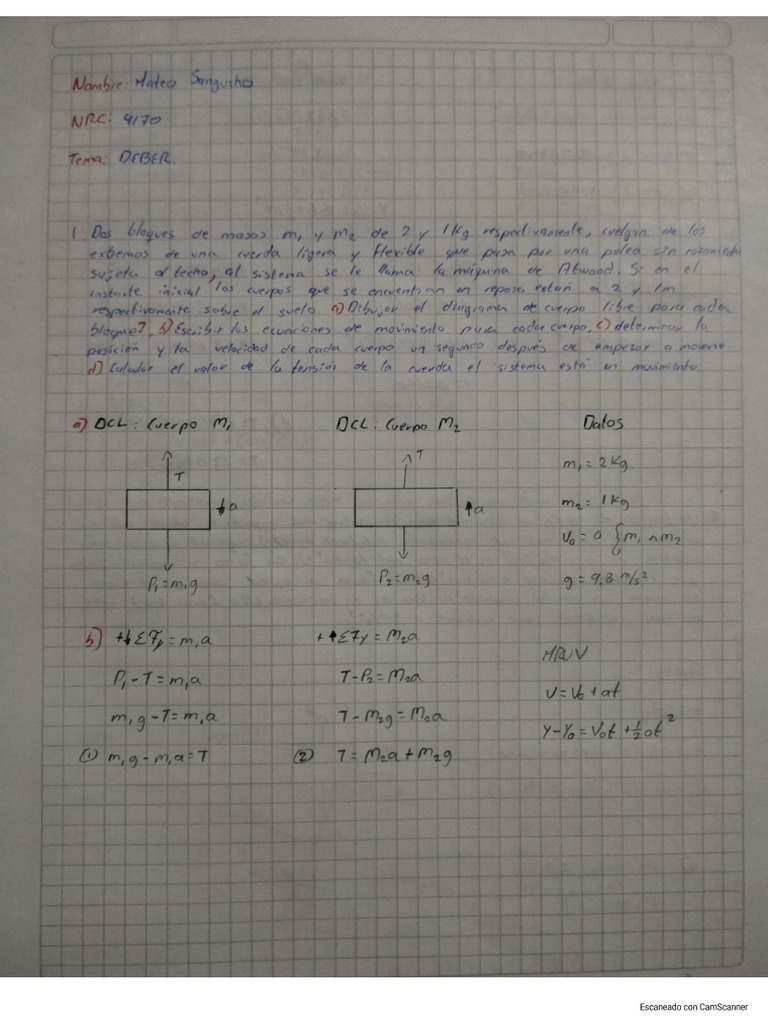 Nombre: Mateo Sangucho
NRC: 4170
Tema: DEBER.
1 Dos bloques de masas m₁ y m₂ de 2 y 1Kg respectivamente, cuelgan de los
extremos de una cuerda ligera y flexible que pasa por una polea sin rozamiento
sujeta al techo, al sistema se le llama la máquina de Atwood. Si en el
instante inicial los cuerpos que se encuentran en reposo están a 2 y 1m
respectivamente sobre el suelo. a) Dibujar el diagrama de cuerpo libre para cada
bloque?. b) Escribir las ecuaciones de movimiento para cada cuerpo. c) determinar la
posición y la velocidad de cada cuerpo un segundo después de empezar a moverse
d) Calcular el valor de la tensión de la cuerda el sistema está en movimiento.
a) DCL: Cuerpo M₁ DCL: Cuerpo M₂ Datos
T T m₁ = 2Kg
a a m₂ = 1Kg
V₀ = 0 { m₁ ∧ m₂
P₁ = m₁g P₂ = m₂g g = 9.8 m/s²
b) +↓ΣFy = m₁a +↑ΣFy = M₂a MRUV
P₁ - T = m₁a T - P₂ = M₂a V = V₀ + at
m₁g - T = m₁a T - M₂g = M₂a Y - Y₀ = V₀t + ½at²
① m₁g - m₁a = T ② T = M₂a + M₂g
Escaneado con CamScanner